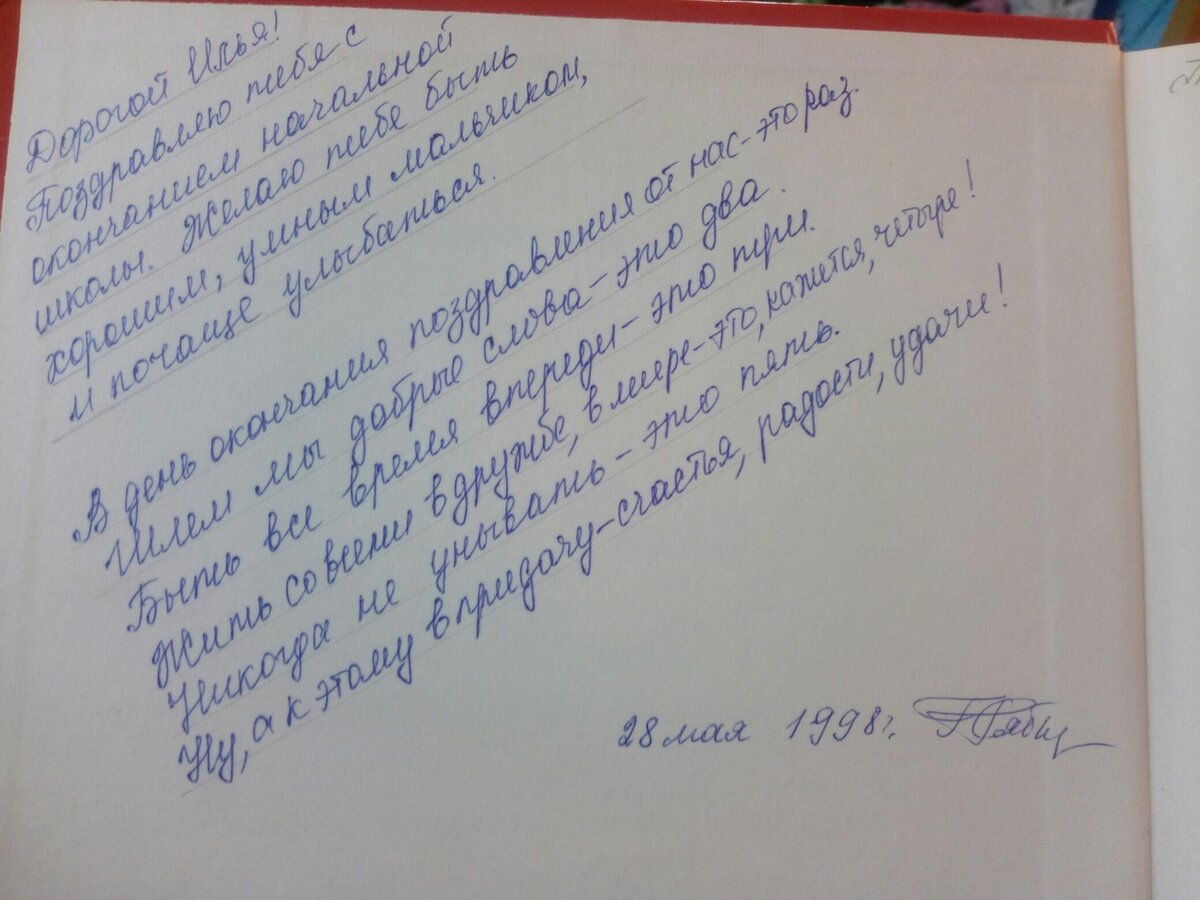 Дорогой Илья!
Поздравляю тебя с
окончанием начальной
школы. Желаю тебе быть
хорошим, умным мальчиком,
и почаще улыбаться.
В день окончания поздравления от нас - это раз.
Шлем мы добрые слова - это два.
Быть все время впереди - это три.
Жить со всеми в дружбе, в мире - это, кажется, четыре!
Никогда не унывать - это пять.
Ну, а к этому в придачу - счастья, радости, удачи!
28 мая 1998г.